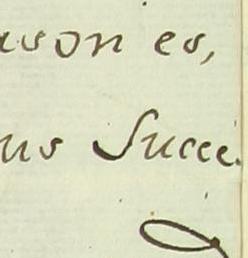 ason es,
us Succe